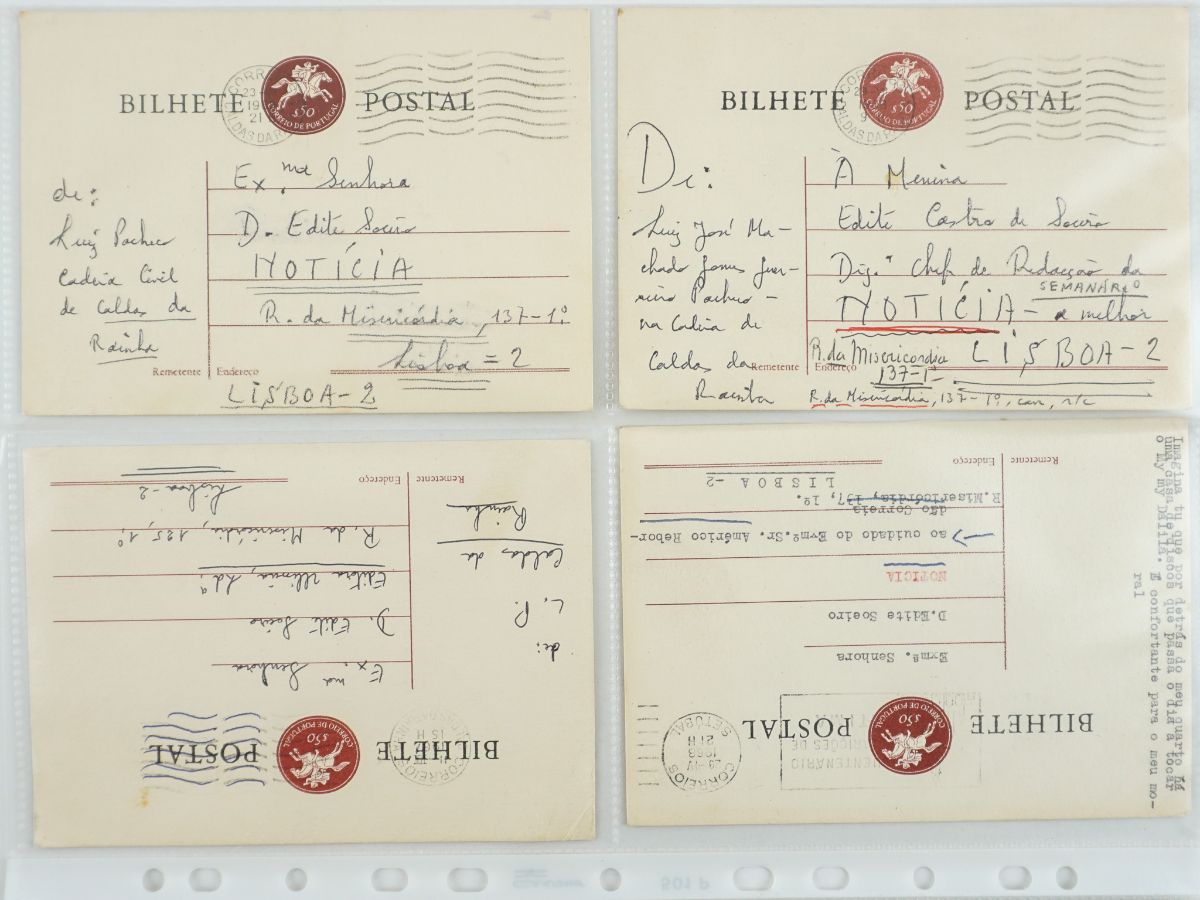 BILHETE POSTAL
CORREIO DE PORTUGAL
$50
de:
Luiz Pacheco
Cadeia Civil
de Caldas da
Rainha
Ex.ma Senhora
D. Edite Soeiro
NOTÍCIA
R. da Misericórdia, 137-1º
Lisboa = 2
Remetente
Endereço
LISBOA-2
BILHETE POSTAL
CORREIO DE PORTUGAL
$50
De:
Luiz José Ma-
chado Gomes Guer-
reiro Pacheco -
na Cadeia de
Caldas da
Rainha
À Menina
Edite Castro de Soeiro
Dig.ª Chefe de Redacção da
SEMANÁRIO
NOTÍCIA - a melhor
R. da Misericordia LISBOA-2
137-1º
Remetente
Endereço
R. da Misericórdia, 137-1º, r/c
BILHETE POSTAL
CORREIO DE PORTUGAL
$50
CORREIOS
15 H
de:
L. P.
Caldas da
Rainha
Ex.ma Senhora
D. Edite Soeiro
Editora Ulisseia, Lda
R. da Misericórdia, 125, 1º
Lisboa-2
Remetente
Endereço
BILHETE POSTAL
CORREIO DE PORTUGAL
$50
CORREIOS
29-IV
1968
21 H
SETÚBAL
Exmª. Senhora
D.Edite Soeiro
NOTICIA
ao cuidado do Exmº.Sr. Américo Rebor-
dão Correia
R.Misericórdia, 137, 1º.
LISBOA -2
Remetente
Endereço
Imagina tu que por detrás do meu quarto há
uma casa de discos que passa o dia a tocar
o My my Dalila. É confortante para o meu mo-
ral
501 P